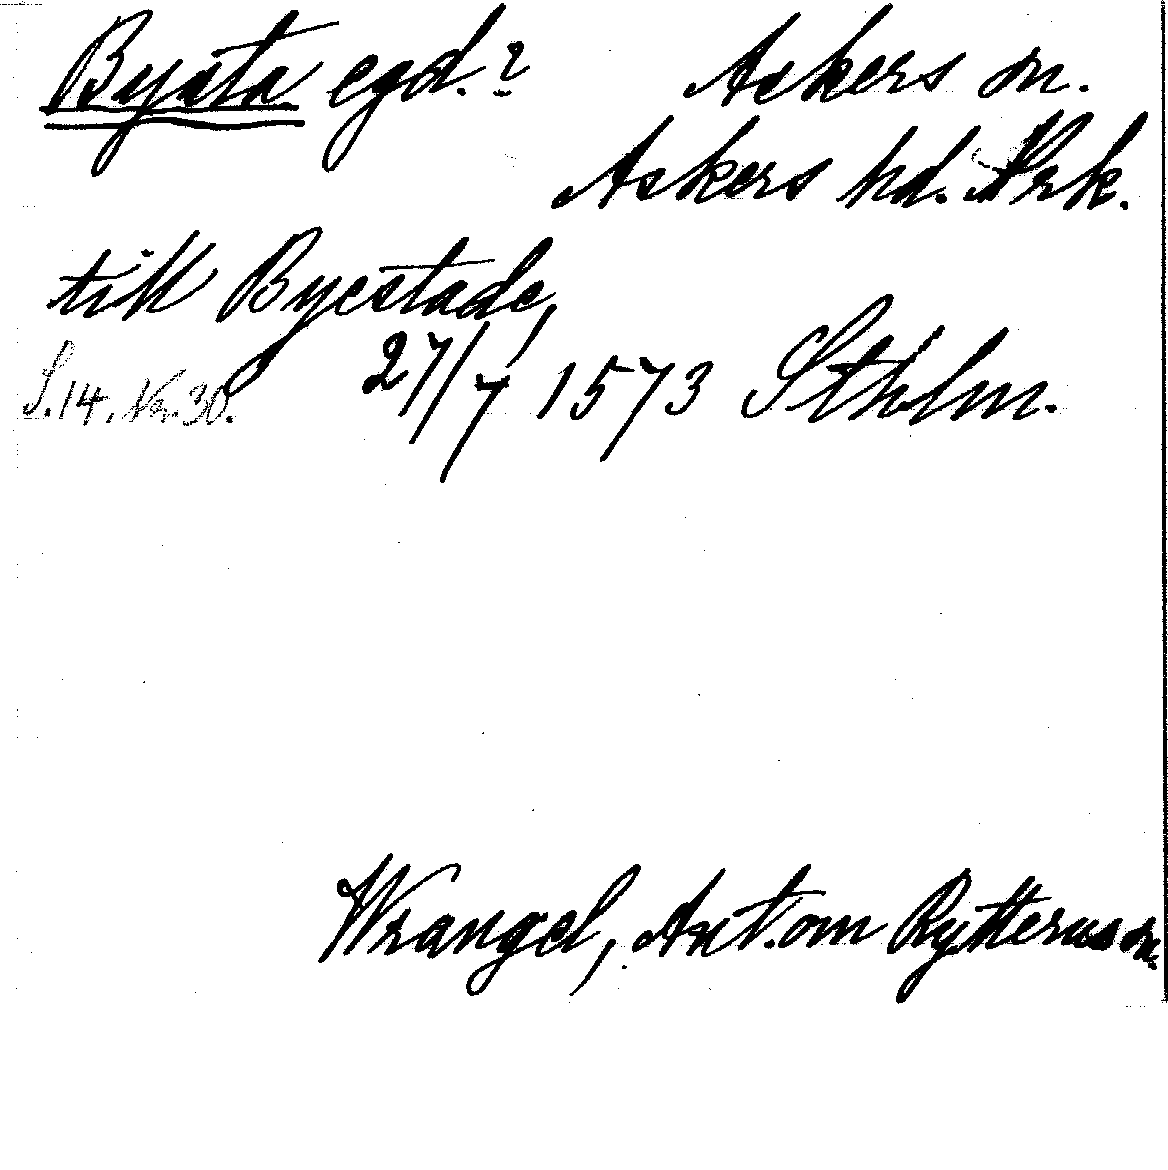 Bysta egd.? Askers sn.
Askers hd. Örk.
till Byestade,
S.14. Nr.30. 27/7 1573 Sthlm.
Wrangel, Ant. om Rytterns sn.